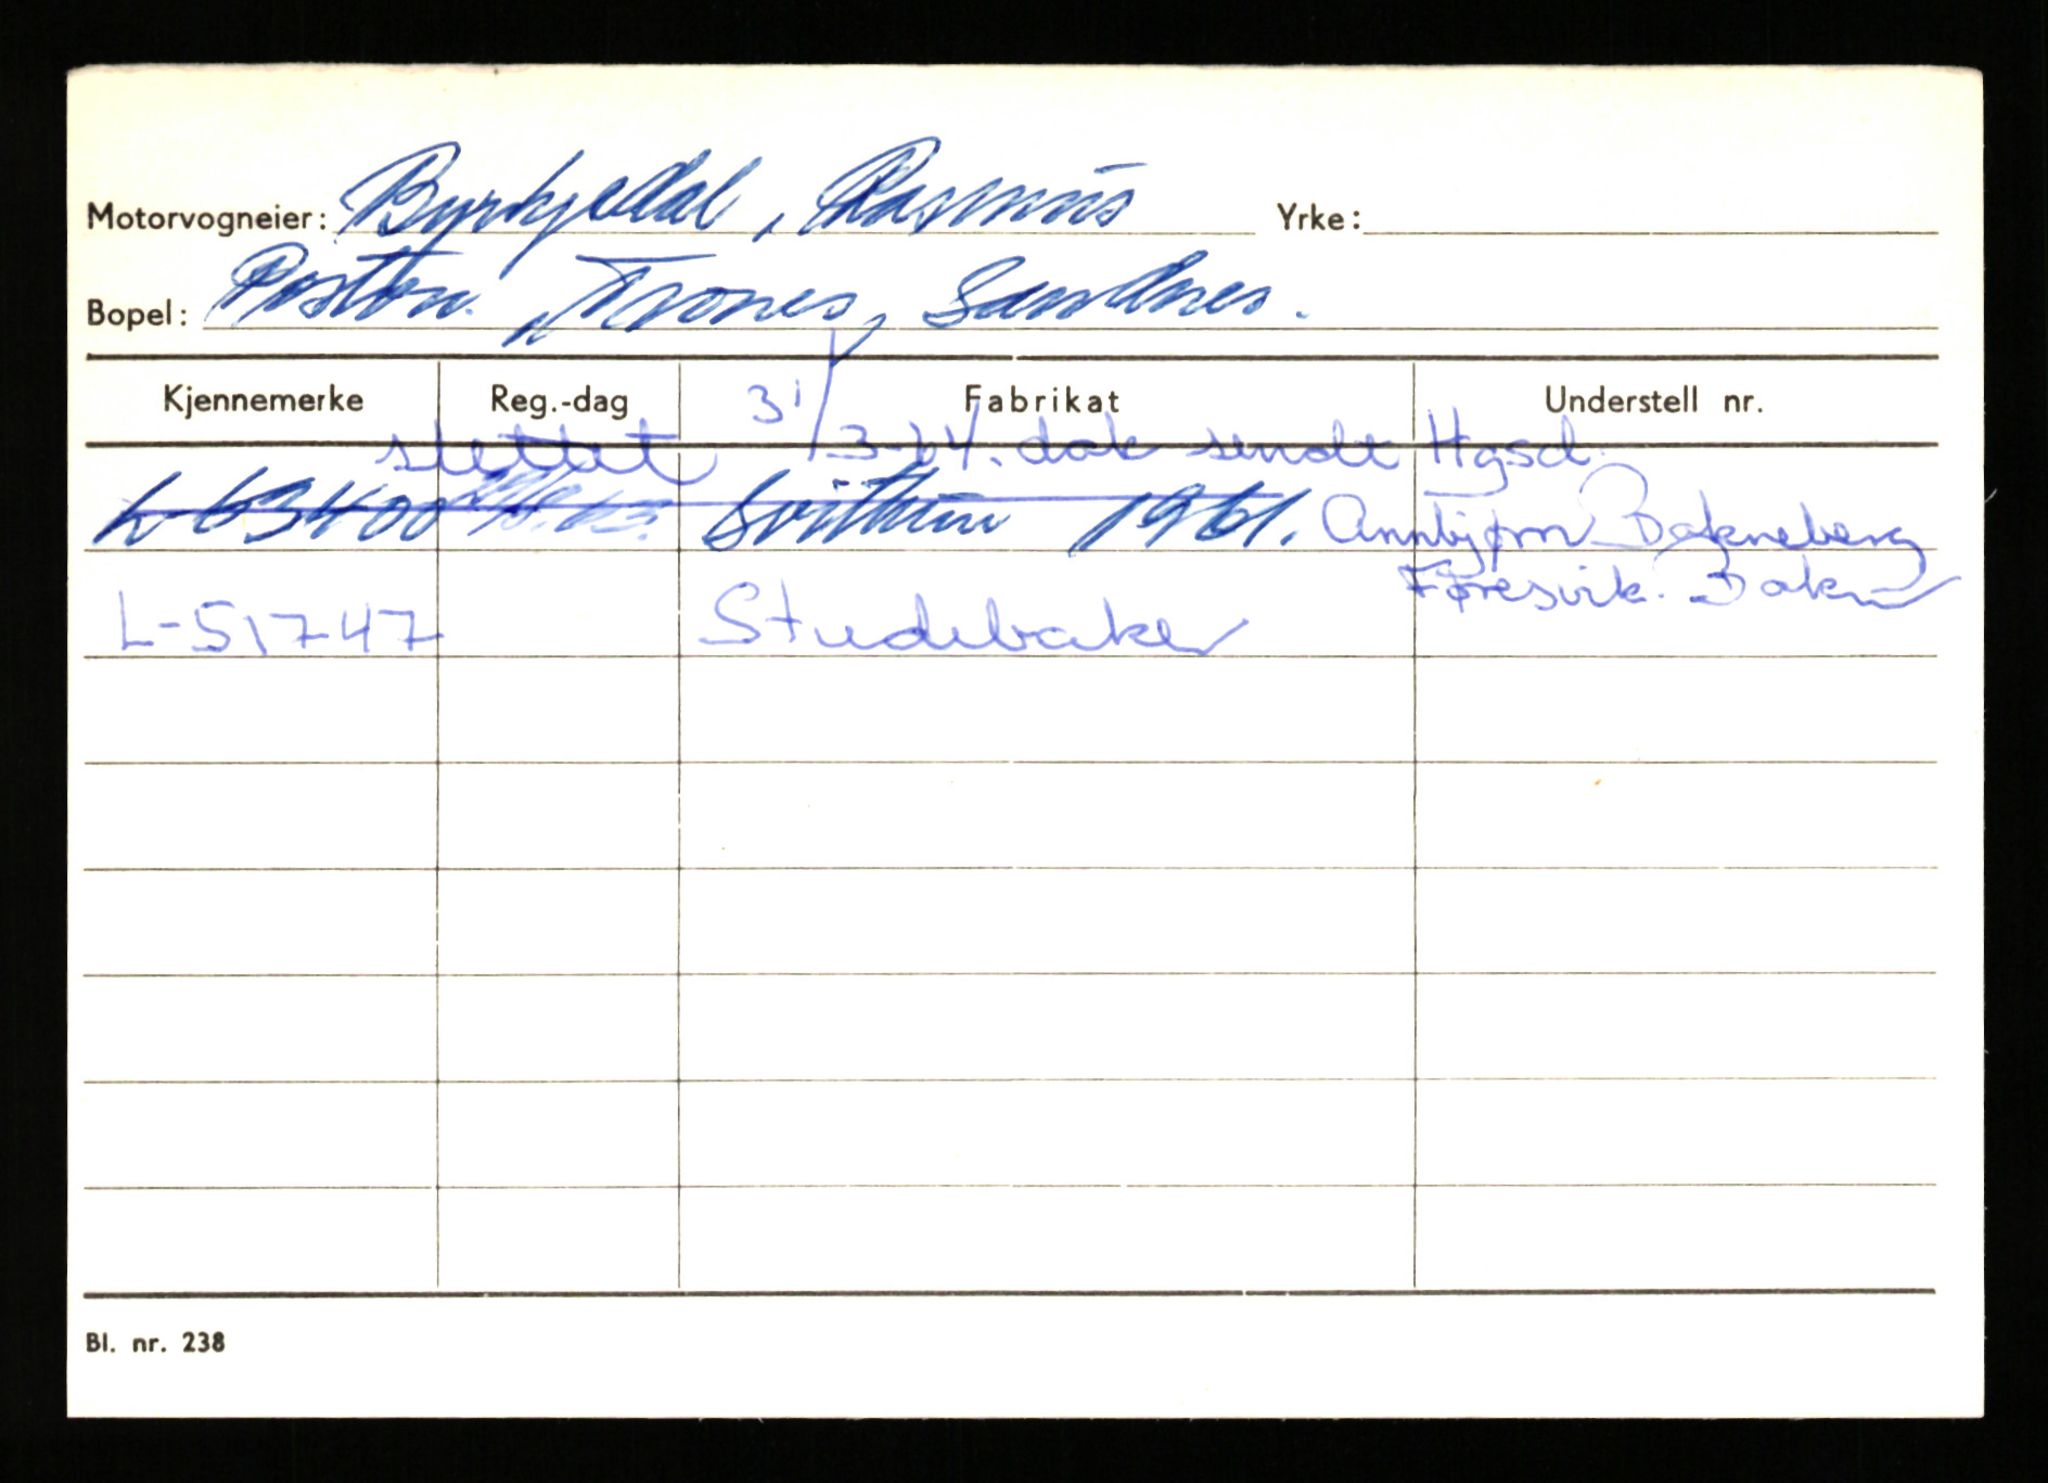 Motorvogneier: Byrkjedal, Rasmus Yrke:
Bopel: Postbox. Trones, Sandnes.
Kjennemerke Reg.-dag Fabrikat Understell nr.
slettet 31/3-64. dok sendt Hgsd.
L-63400 Svithun 1961. Annbjørn Bokneberg
Føresvik. Bokn
L-51747 Studebaker
Bl. nr. 238